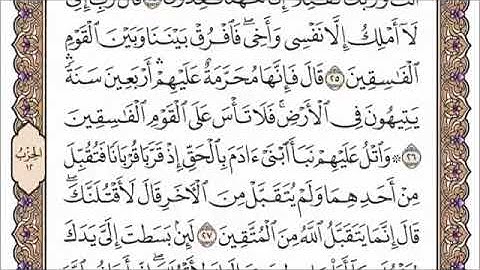 قَالَ رَبِّ إِنِّى
لَآ أَمْلِكُ إِلَّا نَفْسِى وَأَخِى ۖ فَٱفْرُقْ بَيْنَنَا وَبَيْنَ ٱلْقَوْمِ
ٱلْفَـٰسِقِينَ ٢٥ قَالَ فَإِنَّهَا مُحَرَّمَةٌ عَلَيْهِمْ ۛ أَرْبَعِينَ سَنَةً ۛ
يَتِيهُونَ فِى ٱلْأَرْضِ ۚ فَلَا تَأْسَ عَلَى ٱلْقَوْمِ ٱلْفَـٰسِقِينَ
٢٦ ۞ وَٱتْلُ عَلَيْهِمْ نَبَأَ ٱبْنَىْ ءَادَمَ بِٱلْحَقِّ إِذْ قَرَّبَا قُرْبَانًا فَتُقُبِّلَ
مِنْ أَحَدِهِمَا وَلَمْ يُتَقَبَّلْ مِنَ ٱلْـَٔاخَرِ قَالَ لَأَقْتُلَنَّكَ ۖ
قَالَ إِنَّمَا يَتَقَبَّلُ ٱللَّهُ مِنَ ٱلْمُتَّقِينَ ٢٧ لَئِنۢ بَسَطتَ إِلَىَّ يَدَكَ
الحِزْبُ
١٢